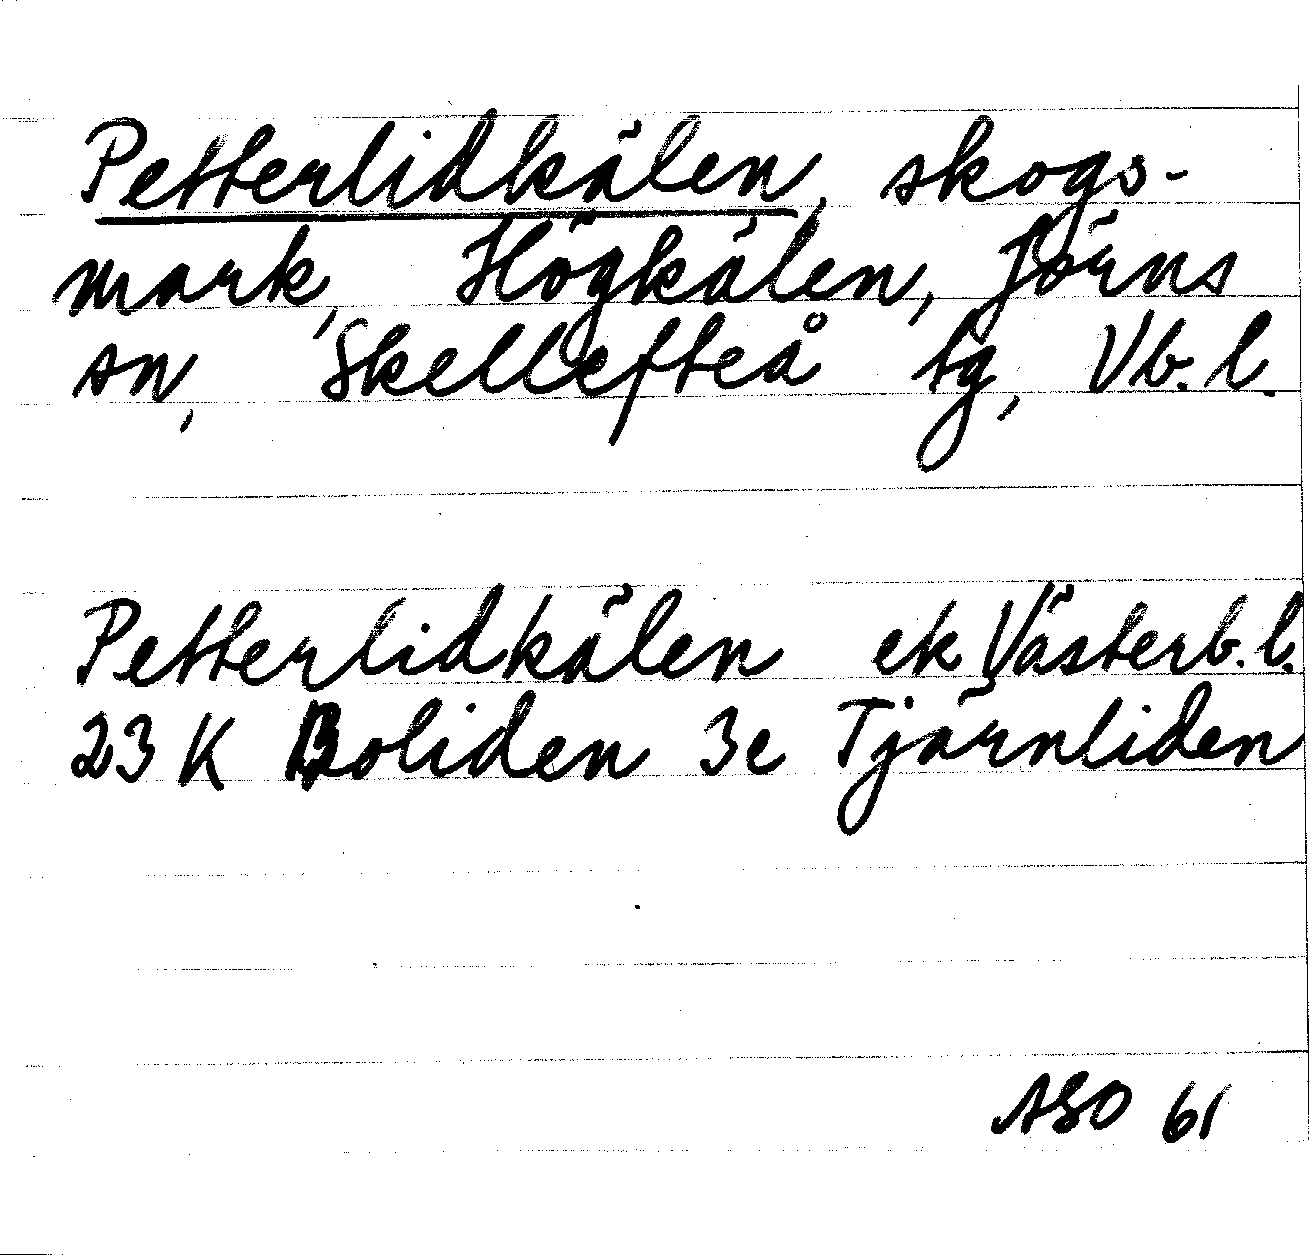 Petterlidkälen, skogs-
mark, Högkälen, Jörns
sn, Skellefteå tg, Vb. l.
Petterlidkälen ek Västerb. l.
23 K Boliden 3e Tjärnliden
ASO 61